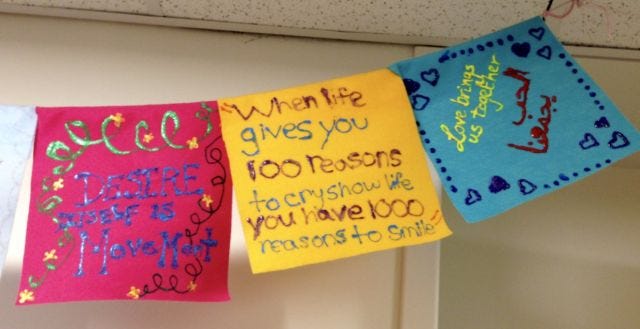 DESIRE
ITSELF IS
MoveMent
When life
gives you
100 reasons
to cry show life
you have 1000
reasons to smile
Love brings
us together
الحب
يجمعنا